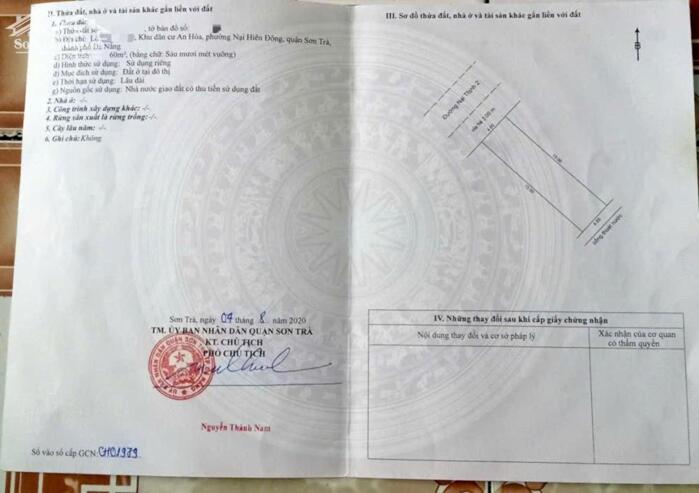 II. Thửa đất, nhà ở và tài sản khác gắn liền với đất
1. Thửa đất:
a) Thửa đất số: , tờ bản đồ số:
b) Địa chỉ: , Khu dân cư An Hòa, phường Nại Hiên Đông, quận Sơn Trà,
thành phố Đà Nẵng
c) Diện tích: 60m², (bằng chữ: Sáu mươi mét vuông)
d) Hình thức sử dụng: Sử dụng riêng
đ) Mục đích sử dụng: Đất ở tại đô thị
e) Thời hạn sử dụng: Lâu dài
g) Nguồn gốc sử dụng: Nhà nước giao đất có thu tiền sử dụng đất
2. Nhà ở: -/-
3. Công trình xây dựng khác: -/-
4. Rừng sản xuất là rừng trồng: -/-
5. Cây lâu năm: -/-
6. Ghi chú: Không.
Sơn Trà, ngày 04 tháng 8 năm 2020
TM. ỦY BAN NHÂN DÂN QUẬN SƠN TRÀ
KT. CHỦ TỊCH
PHÓ CHỦ TỊCH
Nguyễn Thành Nam
Số vào sổ cấp GCN: CH01979
III. Sơ đồ thửa đất, nhà ở và tài sản khác gắn liền với đất
B
Đường Nại Thịnh 2
vỉa hè 3.00 m
4.00
15.00
15.00
4.00
cống thoát nước
IV. Những thay đổi sau khi cấp giấy chứng nhận
Nội dung thay đổi và cơ sở pháp lý
Xác nhận của cơ quan
có thẩm quyền